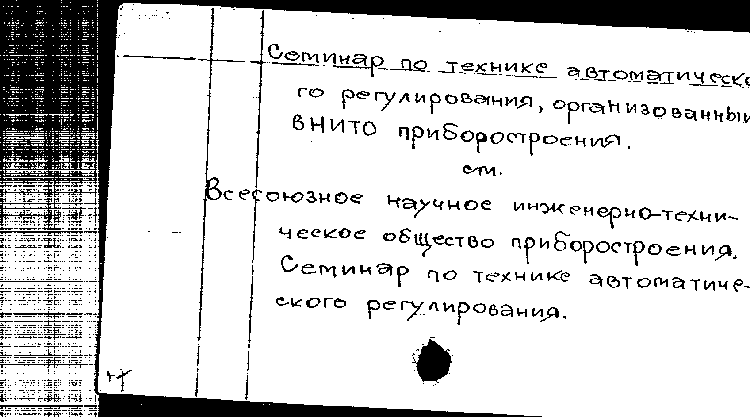 Семинар по технике автоматическо
го регулирования, организованный
ВНИТО приборостроения.
см.
Всесоюзное научное инженерно-техни-
ческое общество приборостроения.
Семинар по технике автоматиче-
ского регулирования.